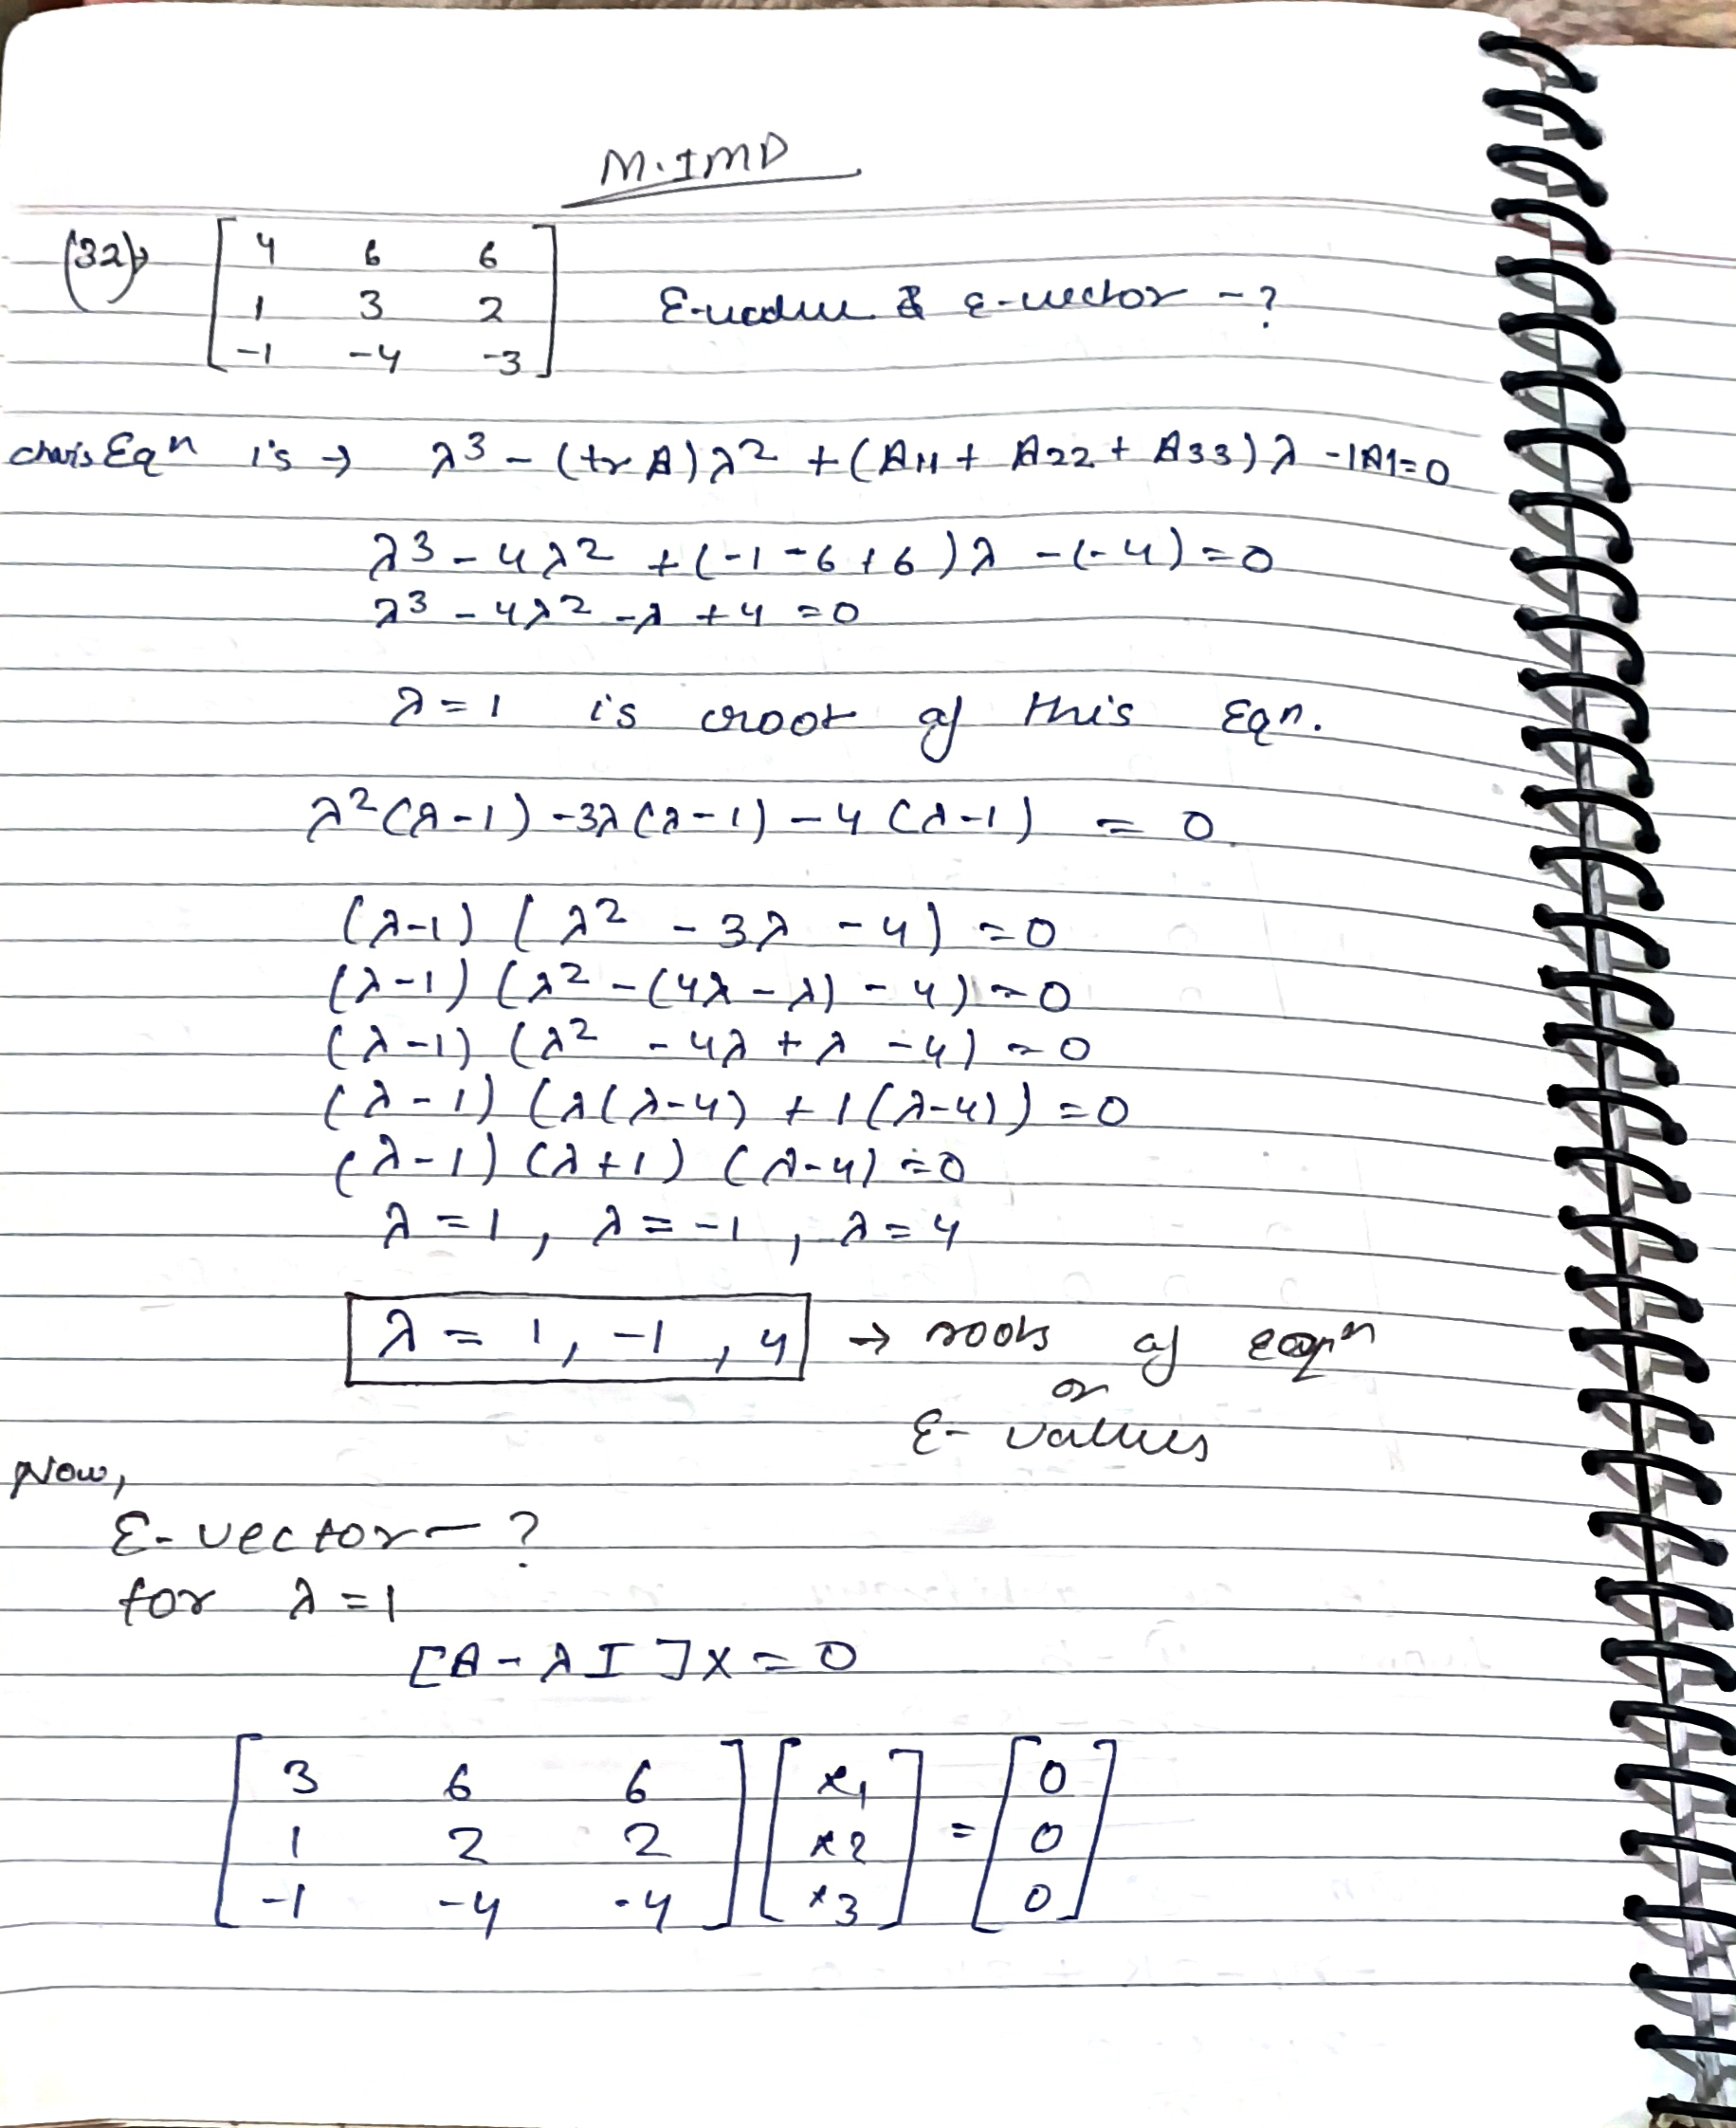 M.IMD
(32)→ [ 4 6 6
1 3 2
-1 -4 -3 ] E-value & E-vector -?
Eqⁿ is → λ³ - (tr A)λ² + (A11 + A22 + A33)λ - |A| = 0
λ³ - 4λ² + (-1 - 6 + 6)λ - (-4) = 0
λ³ - 4λ² - λ + 4 = 0
λ = 1 is root of this Eqn.
λ²(λ-1) - 3λ(λ-1) - 4(λ-1) = 0
(λ-1) (λ² - 3λ - 4) = 0
(λ-1) (λ² - (4λ - λ) - 4) = 0
(λ-1) (λ² - 4λ + λ - 4) = 0
(λ-1) (λ(λ-4) + 1(λ-4)) = 0
(λ-1) (λ+1) (λ-4) = 0
λ = 1, λ = -1, λ = 4
λ = 1, -1, 4 → roots of eqⁿ
or
E- values
Now,
E-vector - ?
for λ = 1
[A - λI]X = 0
[ 3 6 6 ] [ x1 ] = [ 0 ]
[ 1 2 2 ] [ x2 ] = [ 0 ]
[ -1 -4 -4 ] [ x3 ] = [ 0 ]